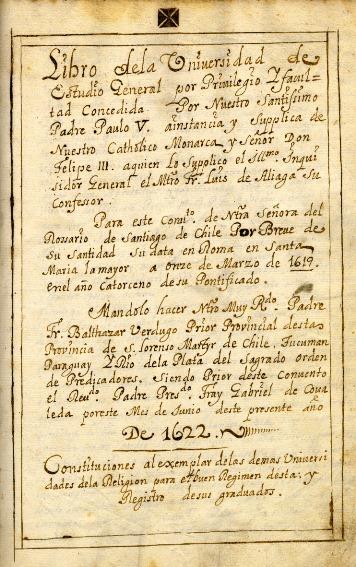 Libro dela Universidad de
Estudio General por Privilegio Y facul=
tad Concedida. Por Nuestro Santissimo
Padre Paulo V. ainstancia y Supplica de
Nuestro Catholico Monarca y Señor Don
Felipe III. aquien lo Supolico el Illmo. Inqui
sidor General el Mtro. Fr. Luis de Aliaga Su
Confessor.
Para este Combto. de Ntra Señora del
Rossario de Santiago de Chile Por Breve de
Su Santidad Su data en Roma en Santa
Maria la mayor a onze de Marzo de 1619.
en el año Catorceno de su Pontificado.
Mandolo hacer Ntro Muy Rdo. Padre
Fr. Balthazar Verdugo Prior Provincial desta
Provincia de S. Lorenso Martyr de Chile, Tucuman
Paraguay Y Rio dela Plata del Sagrado orden
de Predicadores. Siendo Prior deste Convento
el Revdo. Padre Presdo. Fray Gabriel de Cova
leda por este Mes de Junio deste presente año
De 1622.
Constituciones al exemplar delas demas Universi
dades dela Religion para el buen Regimen desta: y
Registro desus graduados.